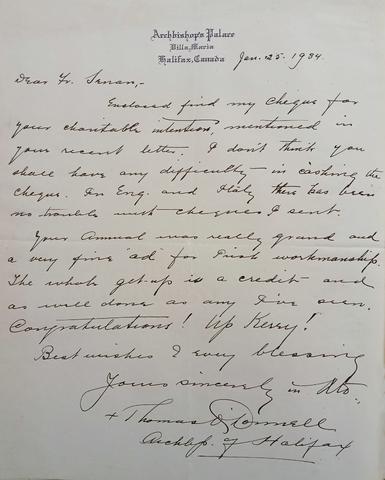 Archbishop's Palace
Villa Maria
Halifax, Canada
Jan. 25. 1934.
Dear Fr. Senan,-
Enclosed find my cheque for
your charitable intention, mentioned in
your recent letter. I don't think you
shall have any difficulty in cashing the
cheque. In Eng. and Italy there has been
no trouble with cheques I sent.
Your Annual was really grand and
a very fine 'ad' for Irish workmanship.
The whole get-up is a credit and
as well done as any I've seen.
Congratulations! Up Kerry!
Best wishes & every blessing
Yours sincerely in Xto.,
+ Thomas O'Donnell
Archbp. of Halifax